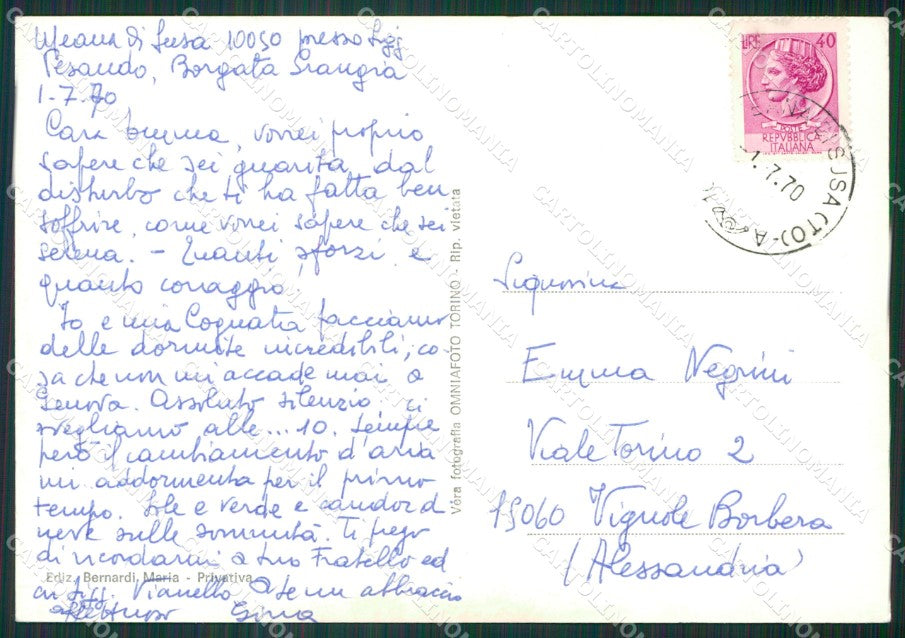 Meana di Susa 10050 presso Sigg
Pesando, Borgata Srangria
1.7.70
Cara Emma, vorrei proprio
sapere che sei guarita dal
disturbo che ti ha fatta ben
soffrire, come vorrei sapere che sei
serena. - Quanti sforzi e
quanto coraggio.
Io e mia Cognata facciamo
delle dormite incredibili, co
sa che non mi accade mai a
Genova. Assoluto silenzio, ci
svegliamo alle ... 10. Sempre
però il cambiamento d'aria
mi addormenta per il primo
tempo. Sole e verde e candor d
neve sulle sommità. Ti prego
di ricordarmi a tuo Fratello ed
ai Sigg. Vianello. A te un abbraccio
affettuoso Gina
Ediz. Bernardi Maria - Privativa
Vera fotografia OMNIAFOTO TORINO - Rip. vietata
LIRE 40
POSTE
REPVBBLICA
ITALIANA
SUSA (TO) - A
1.7.70
Signorina
Emma Negrini
Viale Torino 2
15060 Vignole Borbera
(Alessandria)
CARTOLINOMANIA